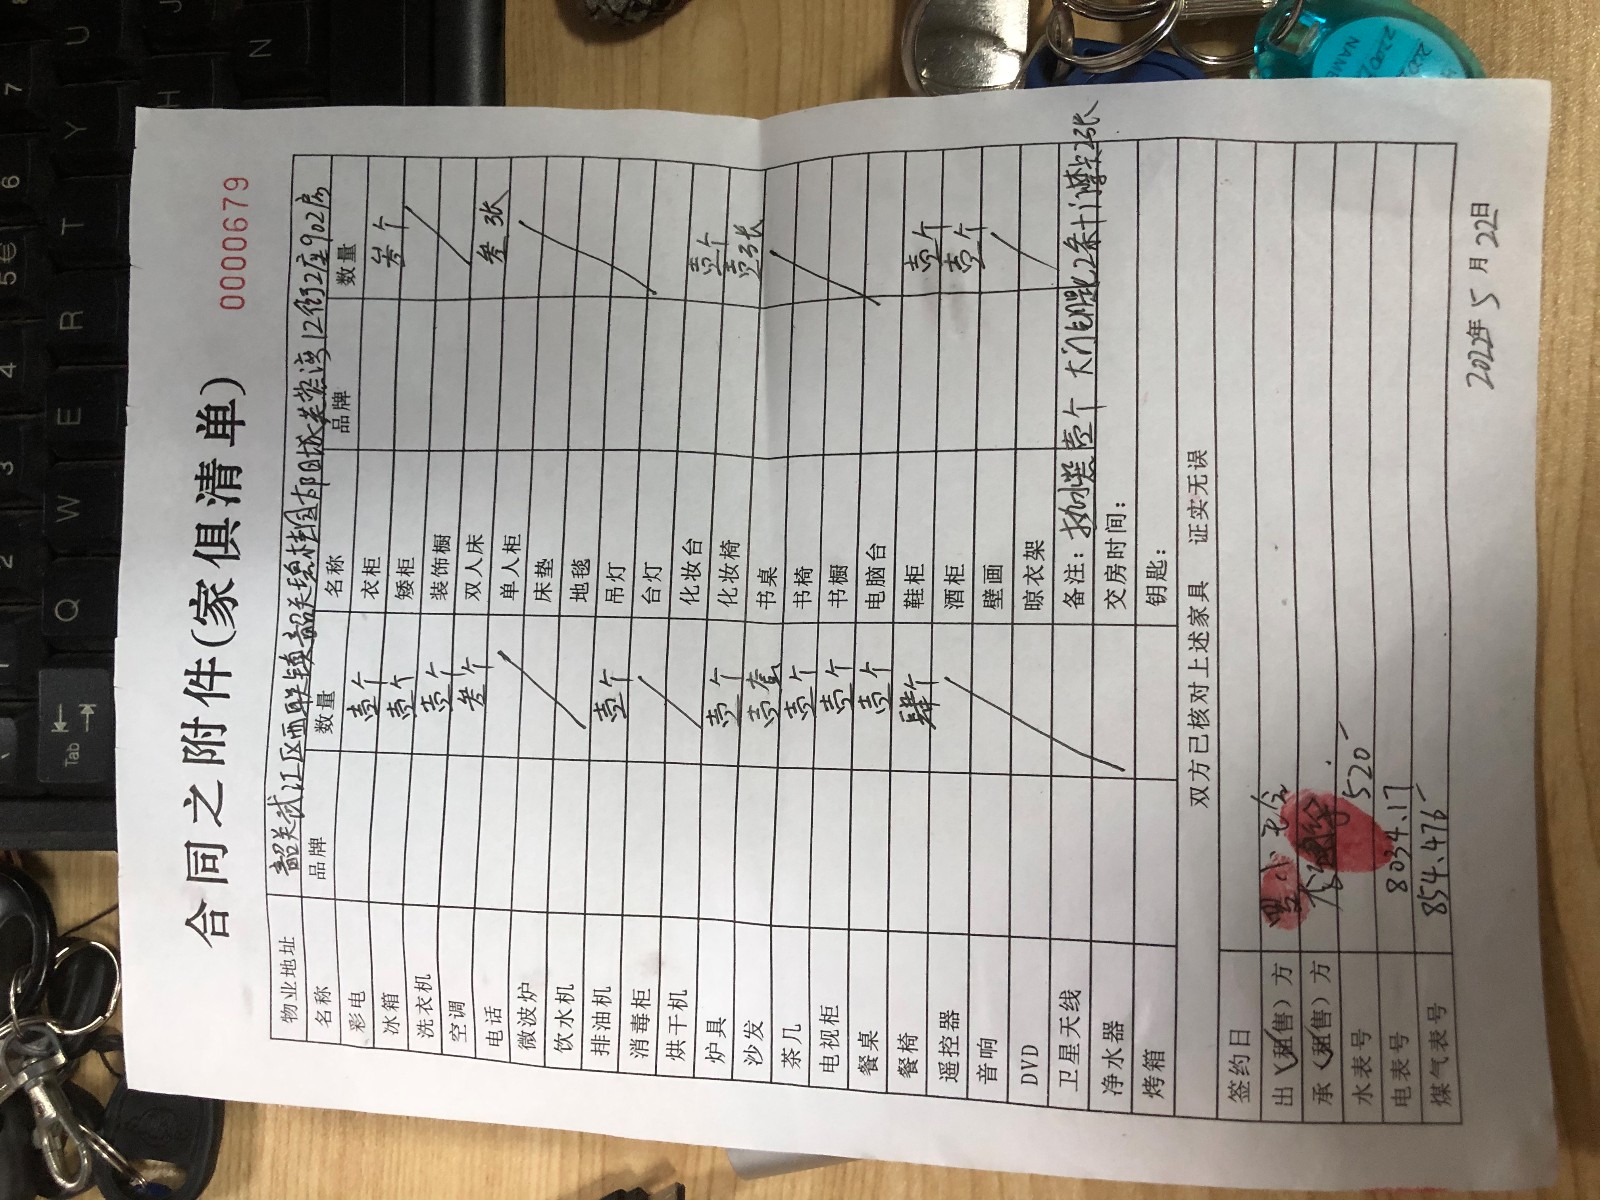 合同之附件(家俱清单)
0000679
物业地址 韶关浈江区西联镇韶关碧桂园太阳城芙蓉湾12街12座902房
名称 品牌 数量 名称 品牌 数量
彩电 壹个 衣柜 叁个
冰箱 壹个 矮柜
洗衣机 壹个 装饰橱
空调 叁个 双人床 叁张
电话 单人柜
微波炉 床垫
饮水机 地毯
排油机 壹个 吊灯
消毒柜 台灯
烘干机 化妆台 壹个
炉具 壹个 化妆椅 壹张
沙发 壹套 书桌
茶几 壹个 书椅
电视柜 壹个 书橱
餐桌 壹个 电脑台
餐椅 肆个 鞋柜 壹个
遥控器 酒柜 壹个
音响 壁画
DVD 晾衣架
卫星天线 备注:热水器壹个 大门钥匙2条 门禁卡2张
净水器 交房时间:
烤箱 钥匙:
双方已核对上述家具 证实无误
签约日
出(租售)方
承(租售)方
水表号 520
电表号 8034.17
煤气表号 854.476
2022年5月22日
Tab
Q W E R T Y U
1 2 3 4 5 € 6 7
H J N
NAME